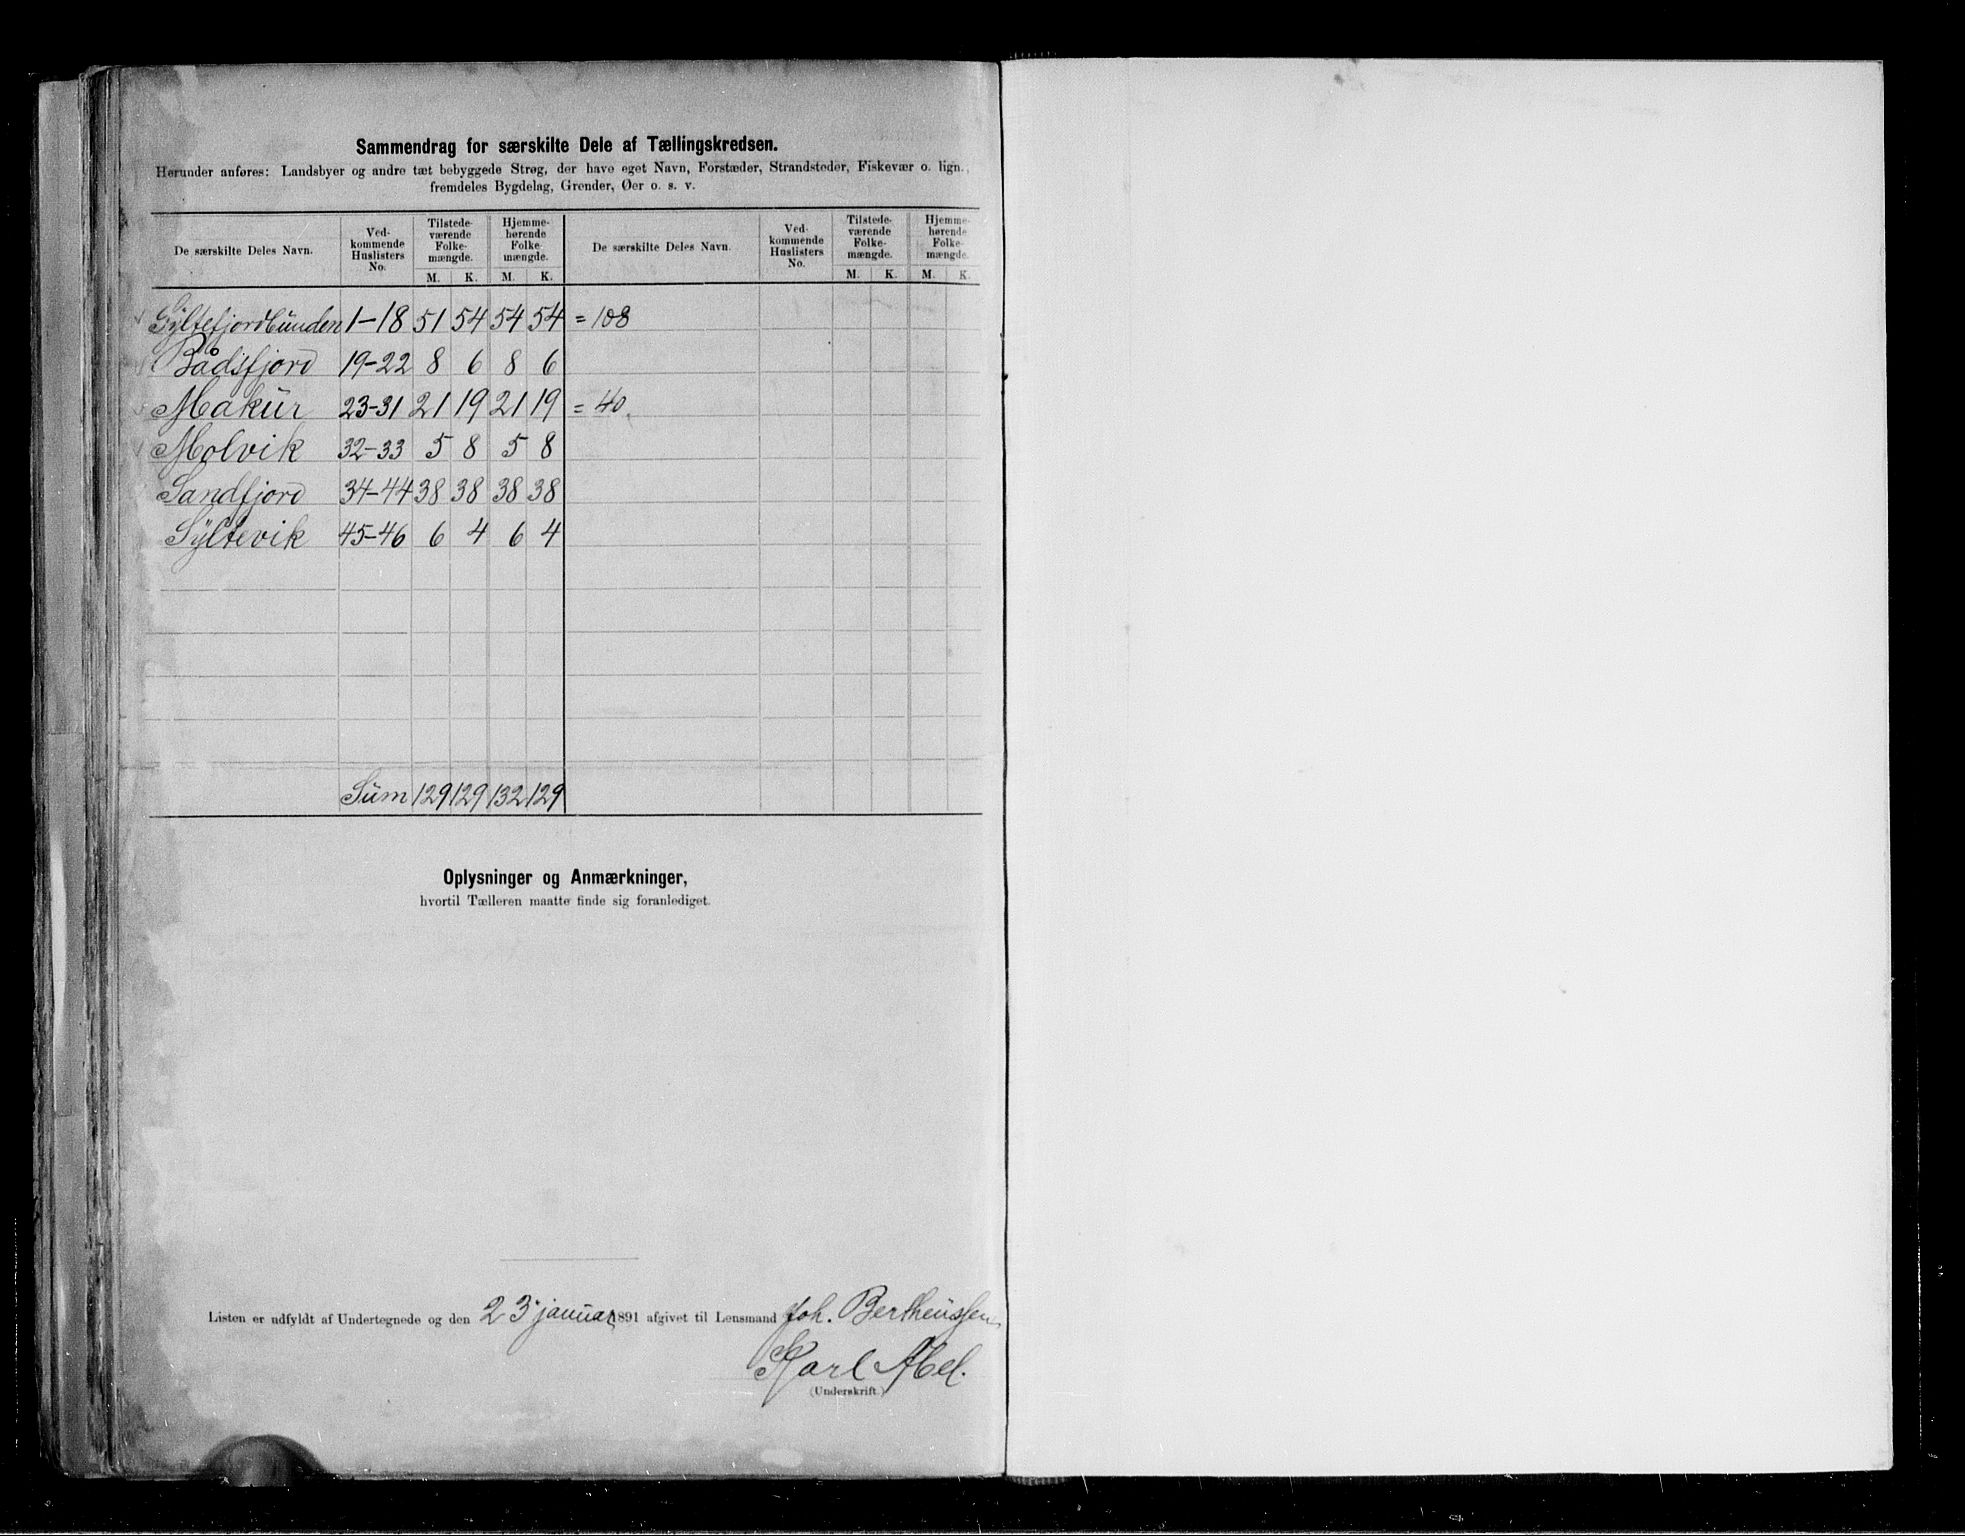 Sammendrag for særskilte Dele af Tællingskredsen.
Herunder anføres: Landsbyer og andre tæt bebyggede Strøg, der have eget Navn, Forstæder, Strandsteder, Fiskevær o. lign.,
fremdeles Bygdelag, Grender, Øer o. s. v.
De særskilte Deles Navn. Ved-kommende Huslisters No. Tilstede-værende Folke-mængde. Hjemme-hørende Folke-mængde. De særskilte Deles Navn. Ved-kommende Huslisters No. Tilstede-værende Folke-mængde. Hjemme-hørende Folke-mængde.
M. K. M. K. M. K. M. K.
Syltefjordbunden 1-18 51 54 54 54 = 108
Bådsfjord 19-22 8 6 8 6
Makur 23-31 21 19 21 19 = 40.
Molvik 32-33 5 8 5 8
Sandfjord 34-44 38 38 38 38
Syltevik 45-46 6 4 6 4
Sum 129 129 132 129
Oplysninger og Anmærkninger,
hvortil Tælleren maatte finde sig foranlediget.
Listen er udfyldt af Undertegnede og den 23 januar 1891 afgivet til Lensmand Joh. Bertheussen
Karl Abel.
(Underskrift.)